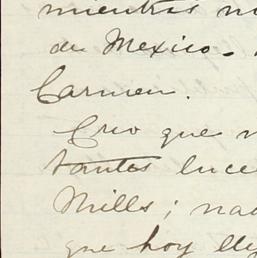 mientras
de Mexico.
Carmen.
Creo que
tantas luce
Mills; nad
que hoy lle